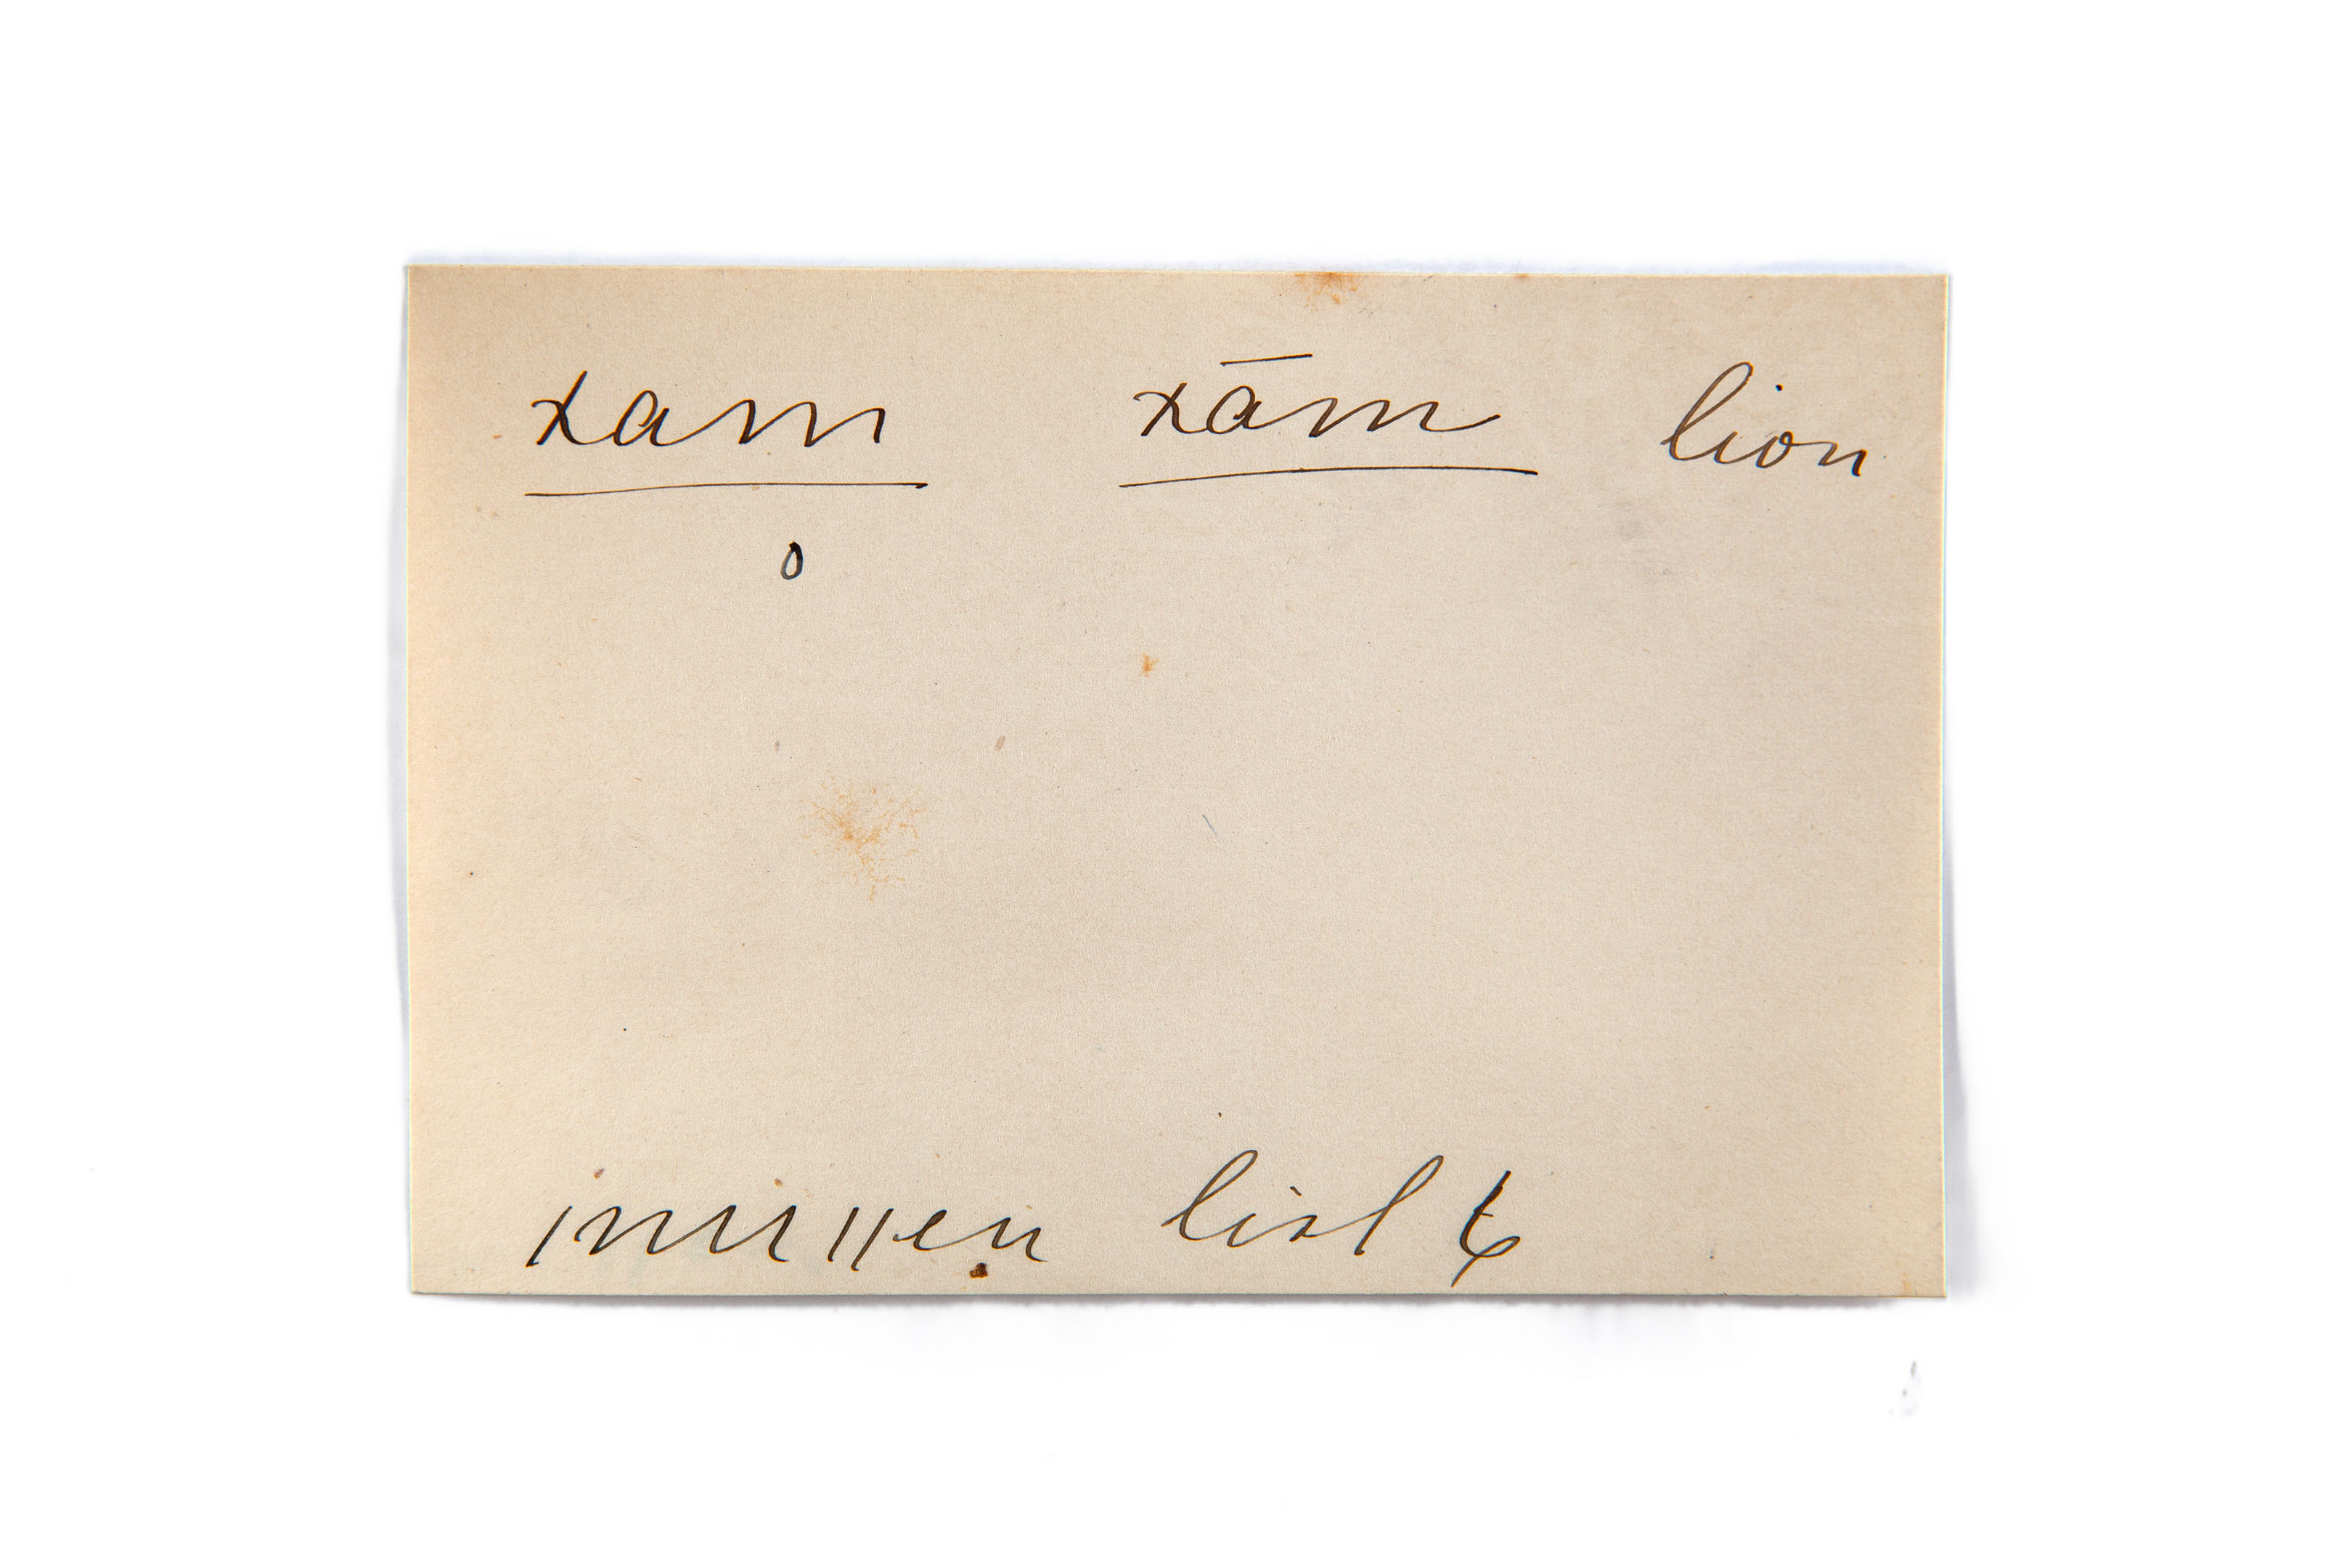 xam xãm lion
o
/nu//en list 6